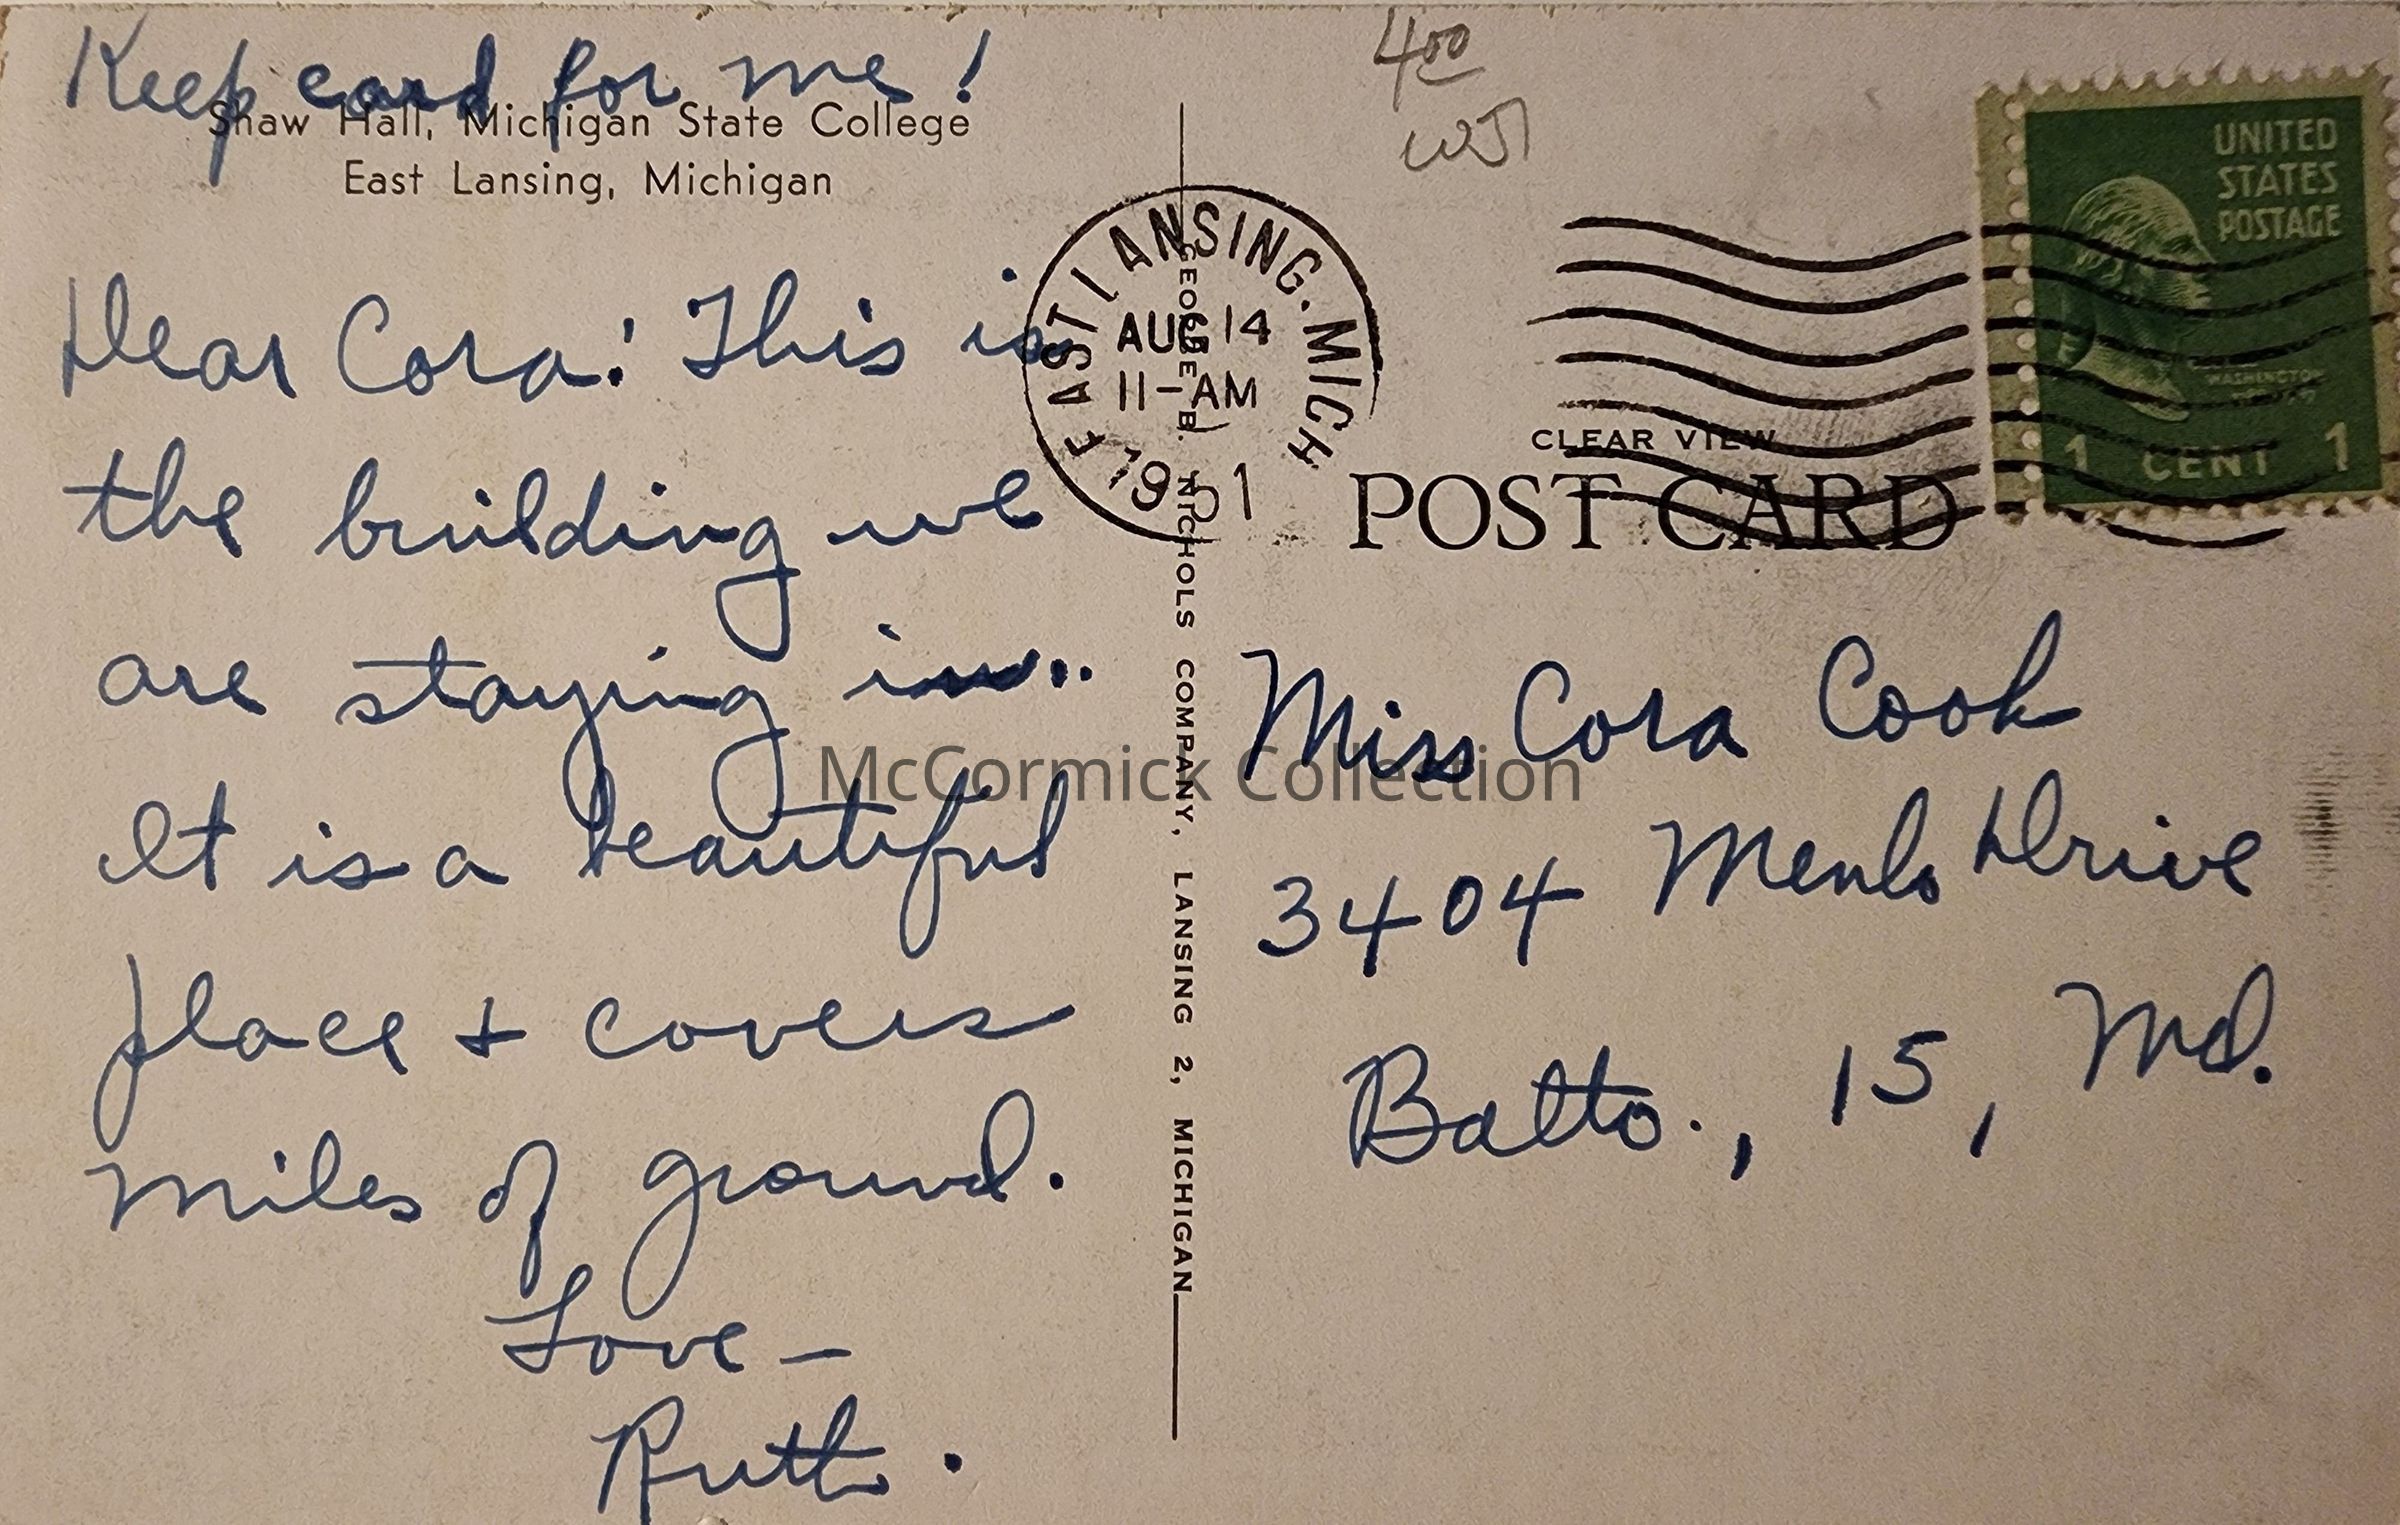 Keep card for me!
Shaw Hall, Michigan State College
East Lansing, Michigan
Dear Cora: This is
the building we
are staying in..
It is a beautiful
place + covers
miles of ground.
Love –
Ruth.
EAST LANSING. MICH
AUG 14
11-AM
1951
GEORGE B. NICHOLS COMPANY, LANSING 2, MICHIGAN
4 00
WJ
UNITED
STATES
POSTAGE
WASHINGTON
1 CENT 1
CLEAR VIEW
POST CARD
Miss Cora Cook
3404 Menlo Drive
Balto., 15, Md.
McCormick Collection